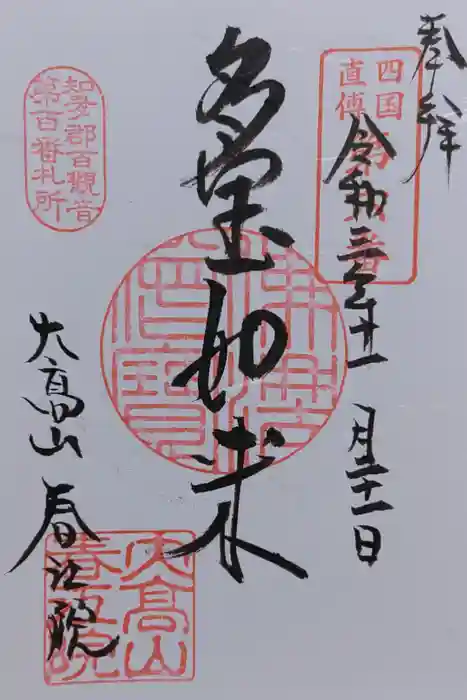 奉拝
四国
直傳
令和三年十一月二十一日
多宝如来
知多郡百観音
第百番札所
大高山
春江院
大高山
春江院